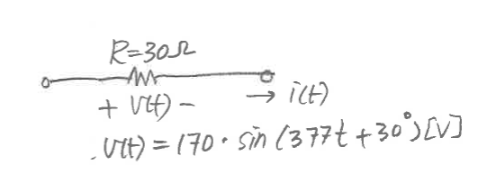 R=30Ω
+ V(t) − → i(t)
.V(t) = 170 · sin (377t + 30°) [V]